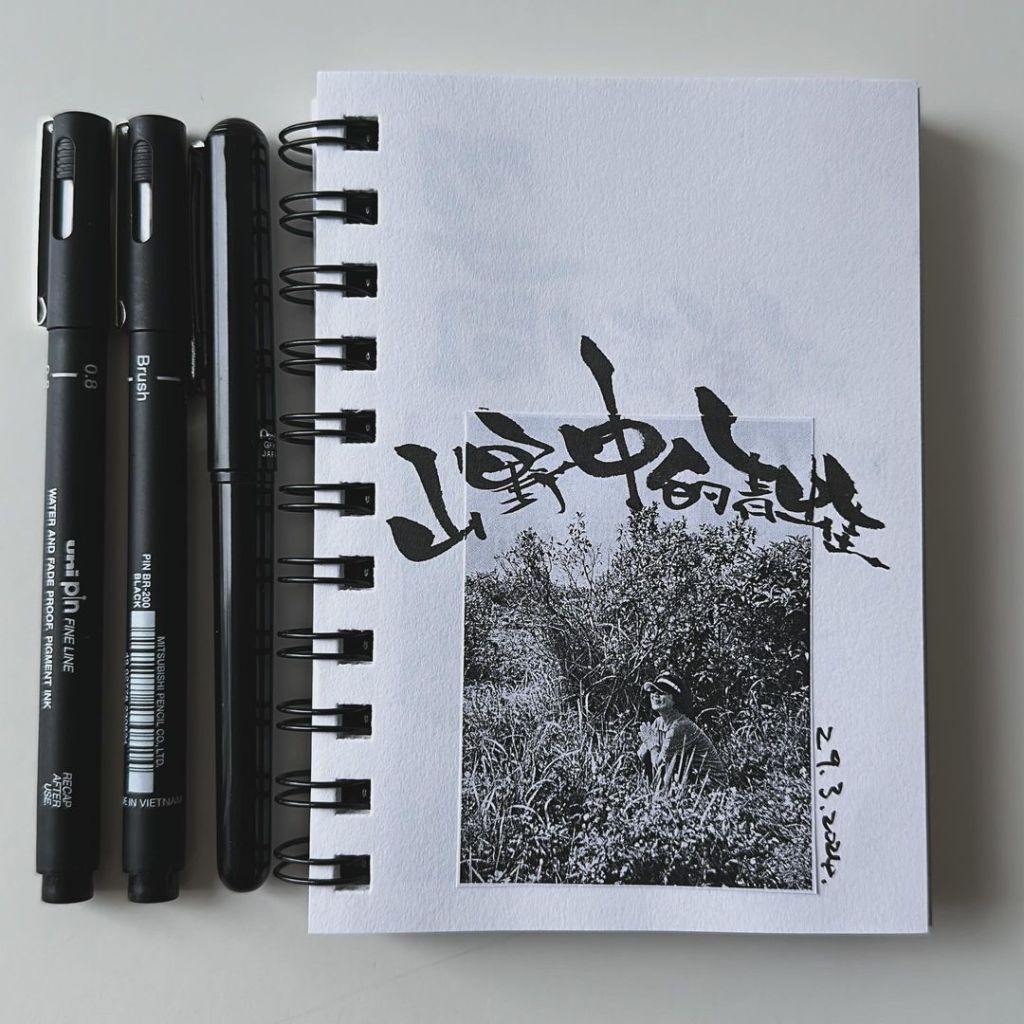 0.8
uni pin FINE LINE
WATER AND FADE PROOF, PIGMENT INK
RECAP
AFTER
USE.
Brush
PIN BR-200
BLACK
MITSUBISHI PENCIL CO., LTD.
DE IN VIETNAM
山野中的青蛙
29.3.2024.